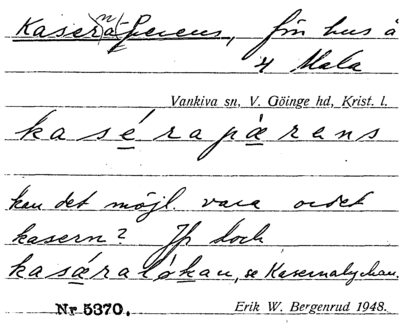 Kasernaperens, fin hus å
4 Mala
Vankiva sn, V. Göinge hd, Krist. l.
kasérapærens
kan det möjl. vara ordet
kasern? Jfr dock
kasæralókan, se Kasernalyckan.
Nr 5370. Erik W. Bergenrud 1948.